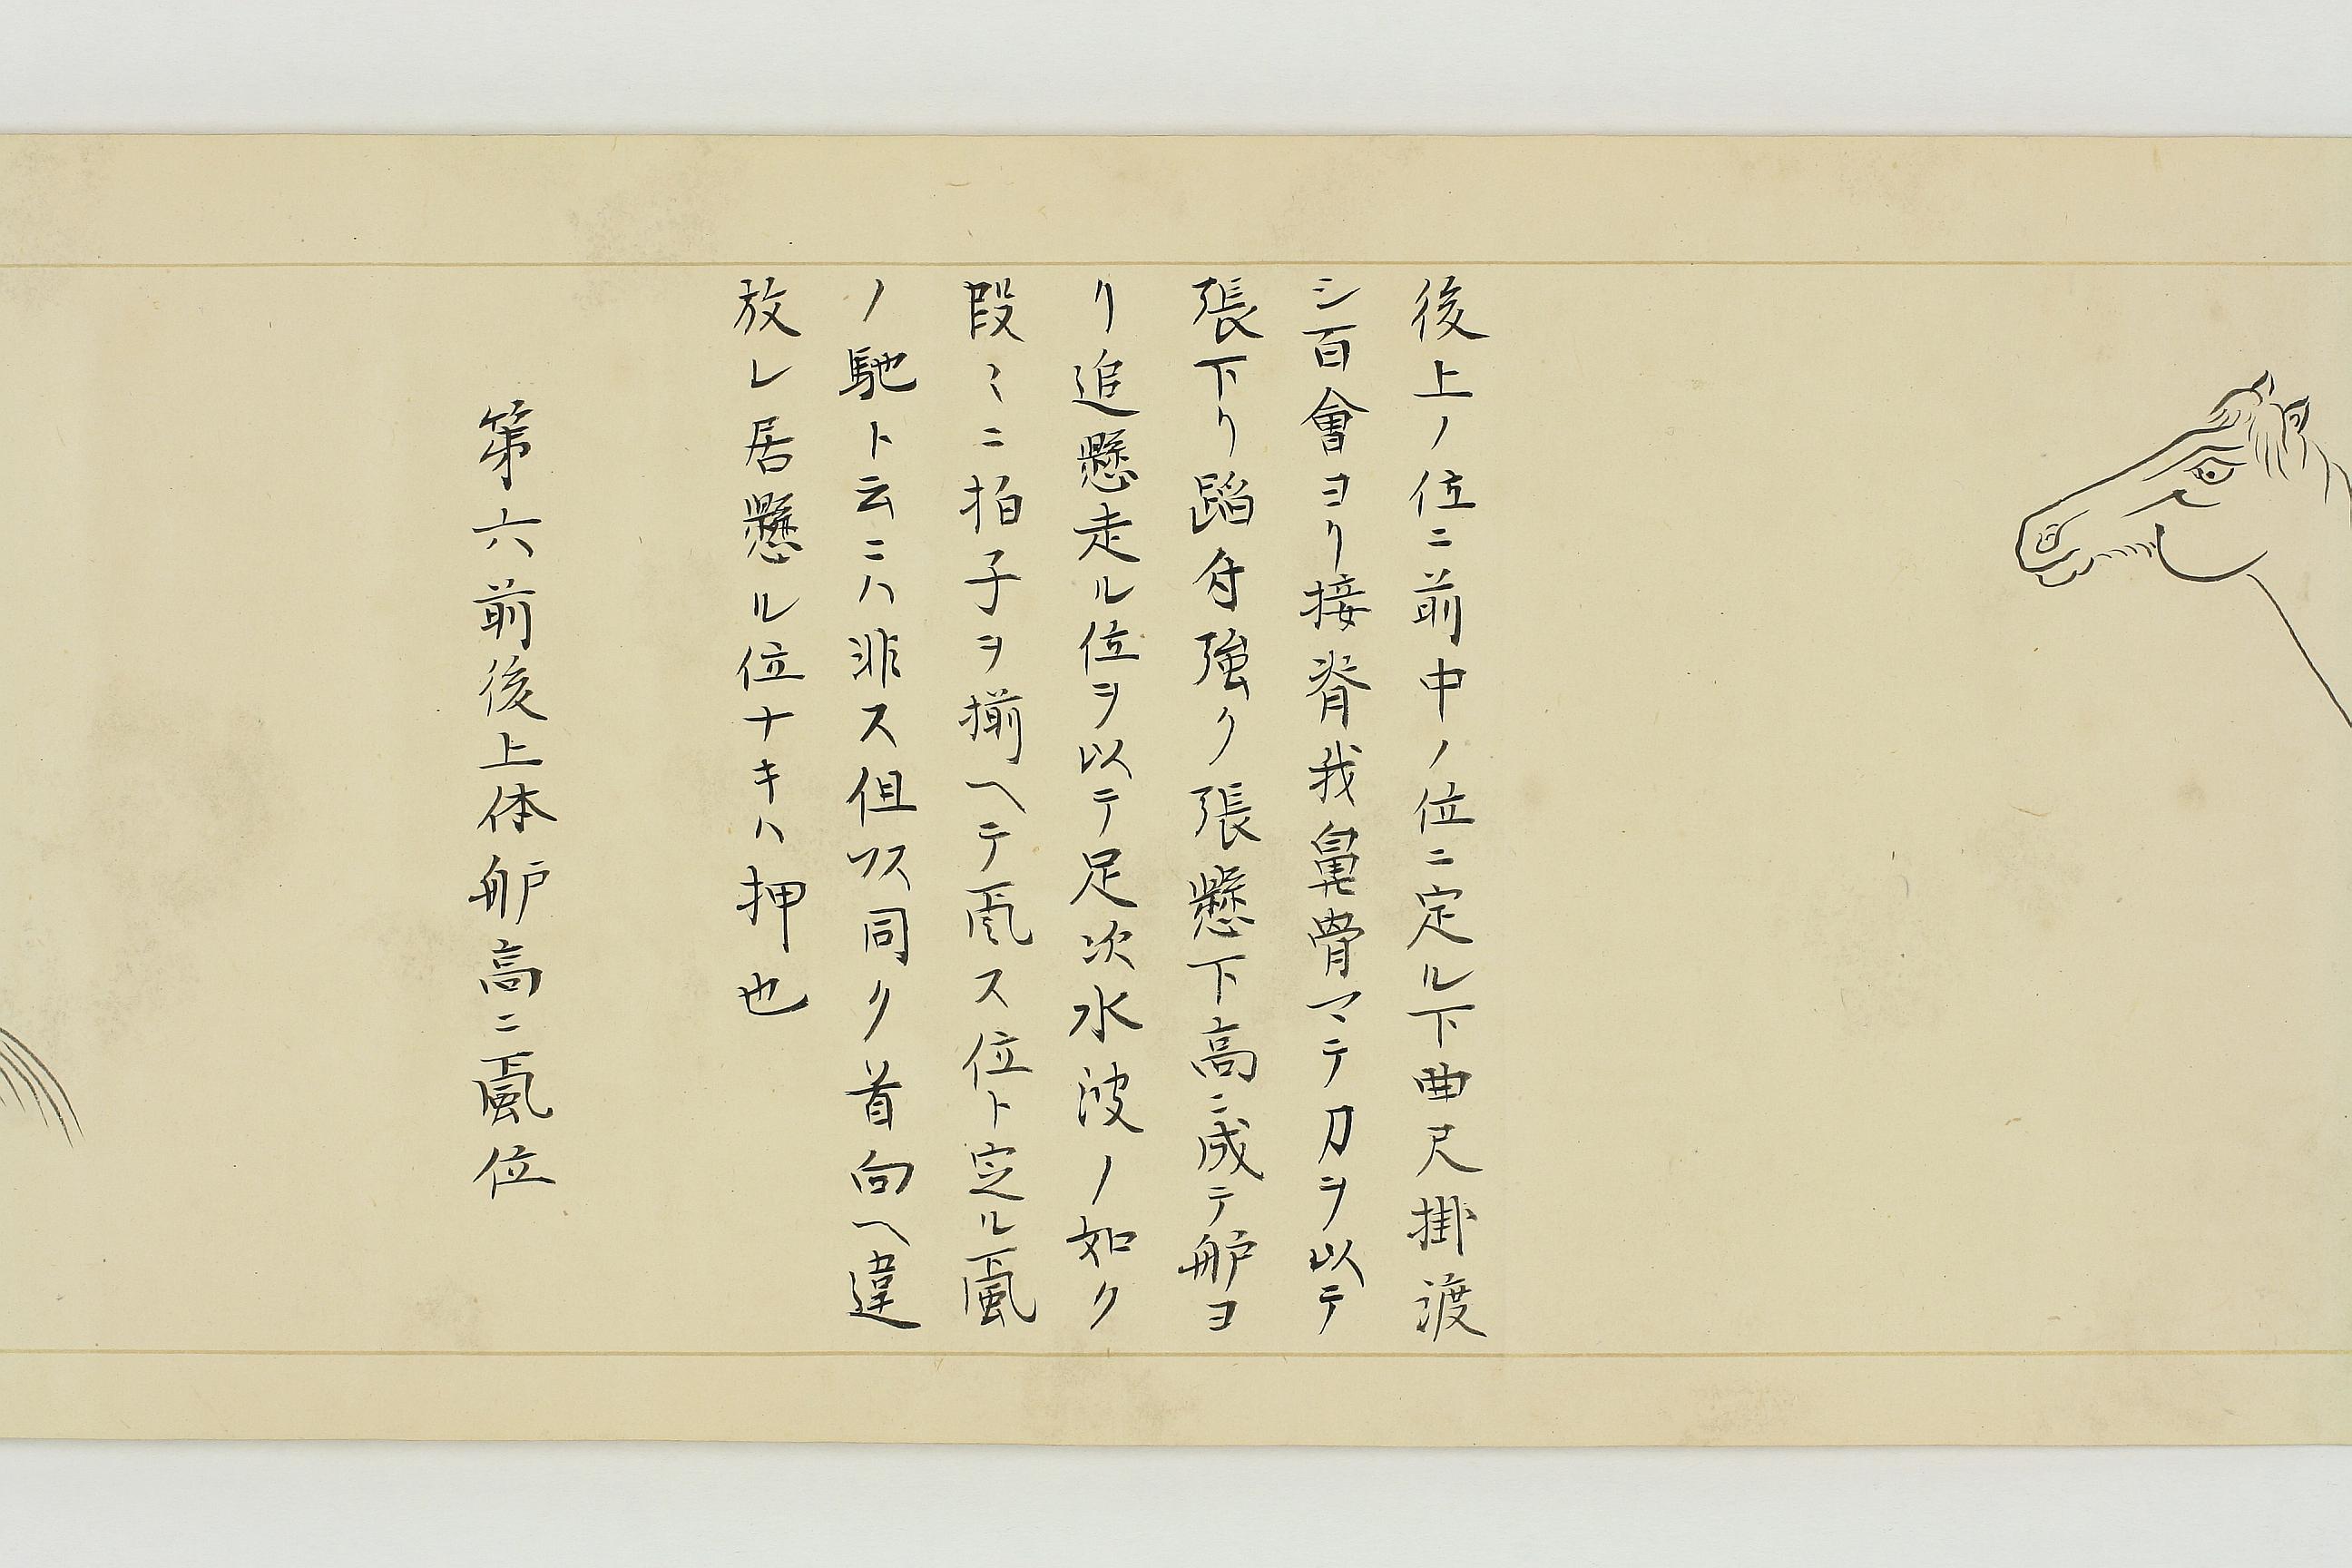 後上ノ位ニ前中ノ位ニ定ル下曲尺掛渡
シ百會ヨリ接脊我鼻骨マテ刀ヲ以テ
張下リ蹈分強ク張懸下高ニ成テ舮ヨ
リ追懸走ル位ヲ以テ足次水波ノ如ク
段〻ニ拍子ヲ揃ヘテ凮ス位ト定ル凮
ノ馳ト云ニハ非ス但乄同ク首向ヘ違
放レ居懸ル位ナキハ押也
第六前後上体舮高ニ凮位